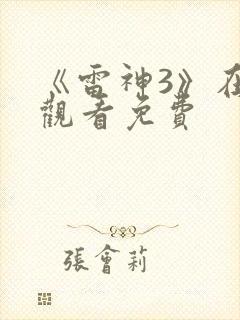 《雷神3》在
觀看免費
張會莉